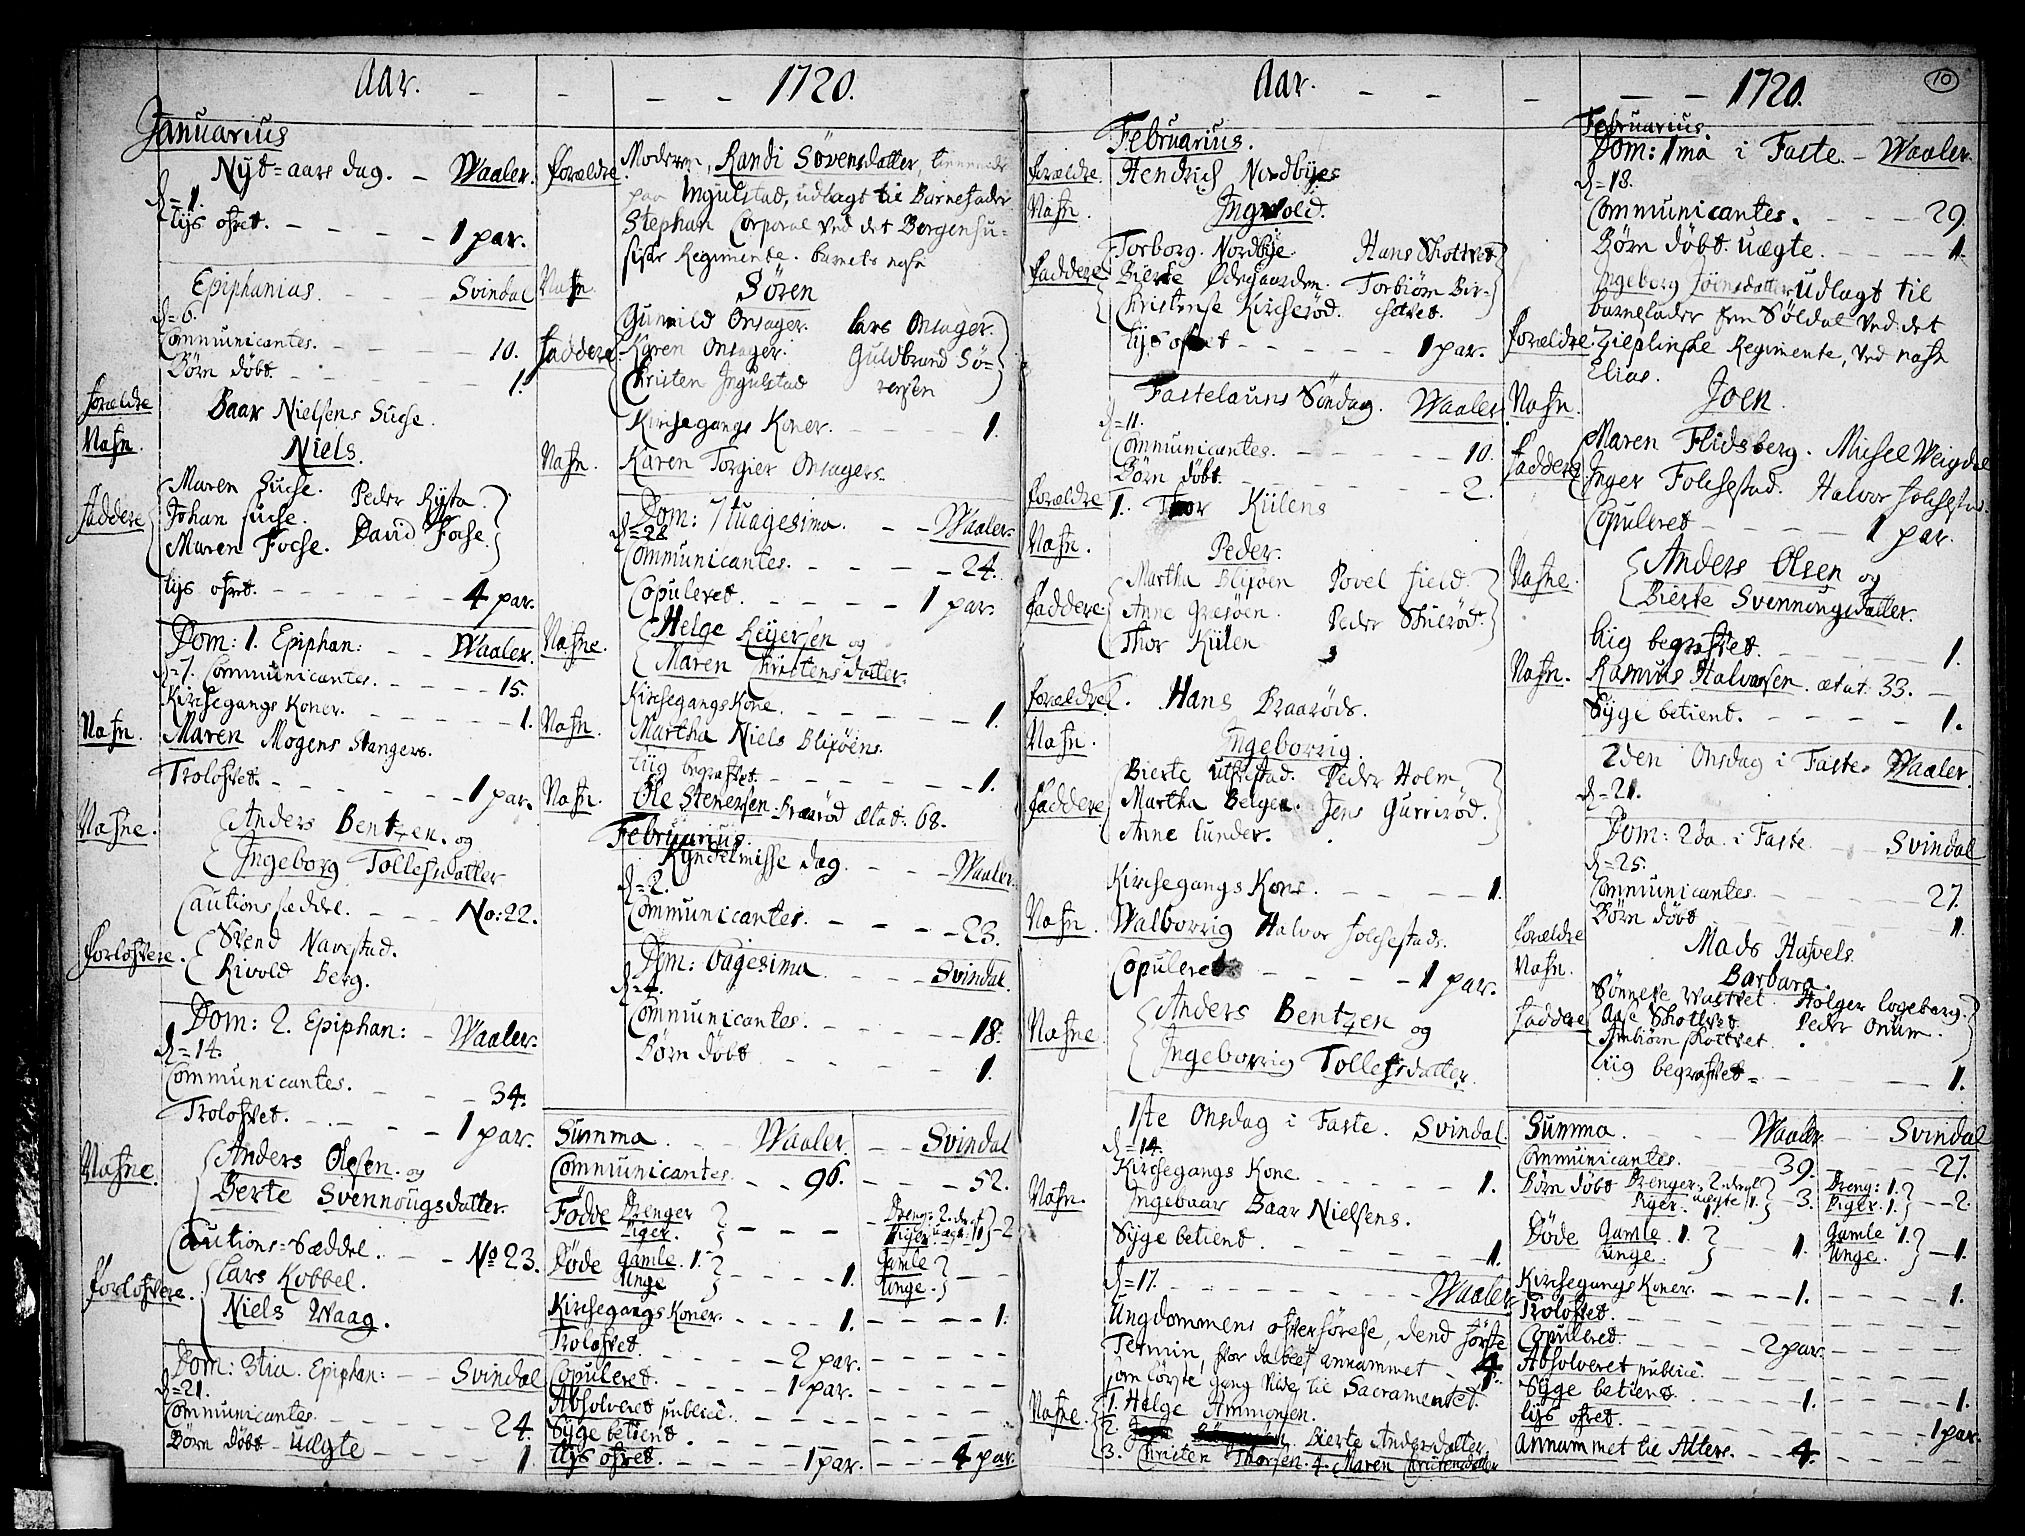 Aar. - - - 1720.
Januarius
Nyt=aars dag. - Waaler.
d=1.
lys ofret. - - - - - 1 par.
Epiphanias. - - - Svindal
d=6.
Communicantes. - - - - 10.
Børn døbt. - - - - - 1.
forældre
Baar Nielsens Suchse.
Nafn.
Niels.
Maren Suchse. Peder Rysta.
faddere Johan Suchse. David Fochse.
Maren Fochse.
lys ofret. - - - - - - 4 par.
Dom: 1. Epiphan: - - Waaler.
d=7. Communicantes. - - - - 15.
Kirchegangs Koner. - - - - - 1.
Nafn. Maren Mogens Stangers.
Trolofvet. - - - - - - 1 par.
Nafne. Anders Bentzen. og
Ingeborg Tollefsdatter
Cautions seddel. - - - No: 22.
Svend Navestad.
forlofvere. Rivold Berg.
Dom: 2. Epiphan: - Waaler.
d=14.
Communicantes. - - - 34.
Trolofvet. - - - - 1 par.
Nafne. Anders Olesen. og
Berte Svennougsdatter.
Cautions=Sæddel. - - No 23.
forlofvere. Lars Kobbel.
Niels Waag.
Dom: 3tia. Epiphan: - - Svindal
d=21.
Communicantes. - - - - 24.
Børn døbt - Uægte - - - - 1
forældre. Moderen, Randi Sørensdatter, tiennende
paa Ingulstad, udlagt til Barnefader
Stephan Corporal ved det Bergenhu=
siske Regimente. barnets nafn
Nafn. Søren
Gunild Onsager. Lars Onsager.
faddere Karen Onsager. Guldbrand Sø=
Christen Ingulstad rensen
Kirchegangs Koner. - - - - 1.
Nafn. Karen Torgier Onsagers.
Dom: 7tuagesima. - - Waaler.
d=28
Communicantes. - - - - 24.
Copuleret. - - - - 1 par.
Nafne. Helge Reyersen og
Maren Christensdatter.
Kirchegangs Kone. - - - - - 1.
Nafn. Martha Niels Blixöens.
Liig begrafvet. - - - - - 1.
Nafn. Ole Stenersen Braarød ætat. 68.
Februarius.
Kyndelmisse dag. - - - Waaler.
d=2.
Communicantes. - - - - 23.
Dom: 6agesima - - - Svindal.
d=4.
Communicantes. - - - - 18.
Børn døbt - - - - - 1.
Summa. - - Waaler. - - Svindal
Communicantes. - - 96. - - - - 52.
Fødde Drenger Piger. - - - Dreng: 2. Piger - 2
Døde Gamle. 1. Unge - - - - 1. Gamle Unge. - -
Kirchegangs Koner. - - - - 1. - - - - 1.
Trolofvet. - - - - 2 par. - - - -
Copuleret. - - - - 1 par. - - - -
Absolveret publicè. - - - - - - - -
Syge betient - - - - - - - -
Lys ofret. - - - - 1 par. - - - 4 par.
Aar. - - - - 1720. 10
Februarius.
forældre. Hendrich Nordbyes
Nafn. Ingvold.
Torborg. Nordbye. Hans Skottvet
faddere Bierte Ødegaarden. Torbiørn Bir=
Christense Kirkerød. ketvet.
lys ofret - - - - - - 1 par.
Fastelauns Søndag. Waaler
d=11.
Communicantes. - - - - - 10.
Børn døbt. - - - - - 2.
forældre 1. Thor Kiilens
Nafn. Peder.
Martha Blixöen Povel field.
faddere Anne Gresöen. Peder Skierød.
Thor Kiilen
forældre 2. Hans Braarøds.
Nafn. Ingeborrig.
Bierte Uthistad. Peder Holm
faddere Martha Berger. Jens Gurrirød.
Anne Lunder.
Kirchegangs Kone. - - - - 1.
Nafn. Walborrig Halvor folchestads.
Copuleret - - - - - 1 par.
Nafne. Anders Bentzen og
Ingeborrig Tollefsdatter.
1ste Onsdag i Faste. Svindal.
d=14.
Kirchegangs Kone. - - - - 1.
Nafn. Ingebaar Baar Nielsens.
Syge betient. - - - - - - 1.
d=17. - - - - - - Waaler
Ungdommens ofverhørelse, dend første
Termin, hvor da blef annammet - 4.
som første gang vilde til Sacramentet.
Nafne. 1. Helge Ammonsen.
2. Bierte Andersdatter.
3. Christen Thorsen. 4. Maren Christensdatter
Februarius.
Dom: 1ma i Faste. - Waaler.
d=18.
Communicantes. - - - - 29.
Børn døbt. uægte. - - - - 1.
Ingeborg Joensdatter udlagt til
barnefader een Soldat ved det
forældre. Zieplinske Regimente, ved nafn
Elias.
Nafn. Joen.
Maren Flidsberg. Michel Weigdal
faddere Inger Folchestad. Halvor folchestad.
Copuleret - - - - 1 par.
Nafne. Anders Olsen og
Bierte Svennungsdatter.
Liig begrafvet. - - - - - 1.
Nafn. Rasmus Halvorsen. ætat. 33. -
Syge betient. - - - - 1.
2den Onsdag i Faste. Waaler.
d=21.
Dom: 2da. i Faste. - - Svindal
d=25.
Communicantes. - - - - 27.
Børn døbt - - - - - 1.
forældre Mads Hafvels.
Nafn. Barbara.
Wastvet. Holger Logeberg.
faddere Aase Skottvet. Peder Onum.
Arnbiørn Skottvet.
Liig begrafvet - - - - - 1.
Summa. - - - Waaler - - Svindal
Communicantes. - - - 39. - - - 27.
Børn døbt Drenger: 2. Piger. 1. - 3. Dreng: 1. Piger. 1. - - 2.
Døde Gamle. 1. Unge. - - 1. Gamle 1. Unge. - 1.
Kirchegangs Koner. - - - 1. - - - - 1.
Trolofvet. - - - - - - - -
Copuleret. - - - 2 par. - - - -
Absolveret publicè. - - - - - - -
Syge betient. - - - - 1. - - - - 1.
Lys ofret. - - - - - - - - 1 par.
Annammet til Alters. - - 4. - - - -